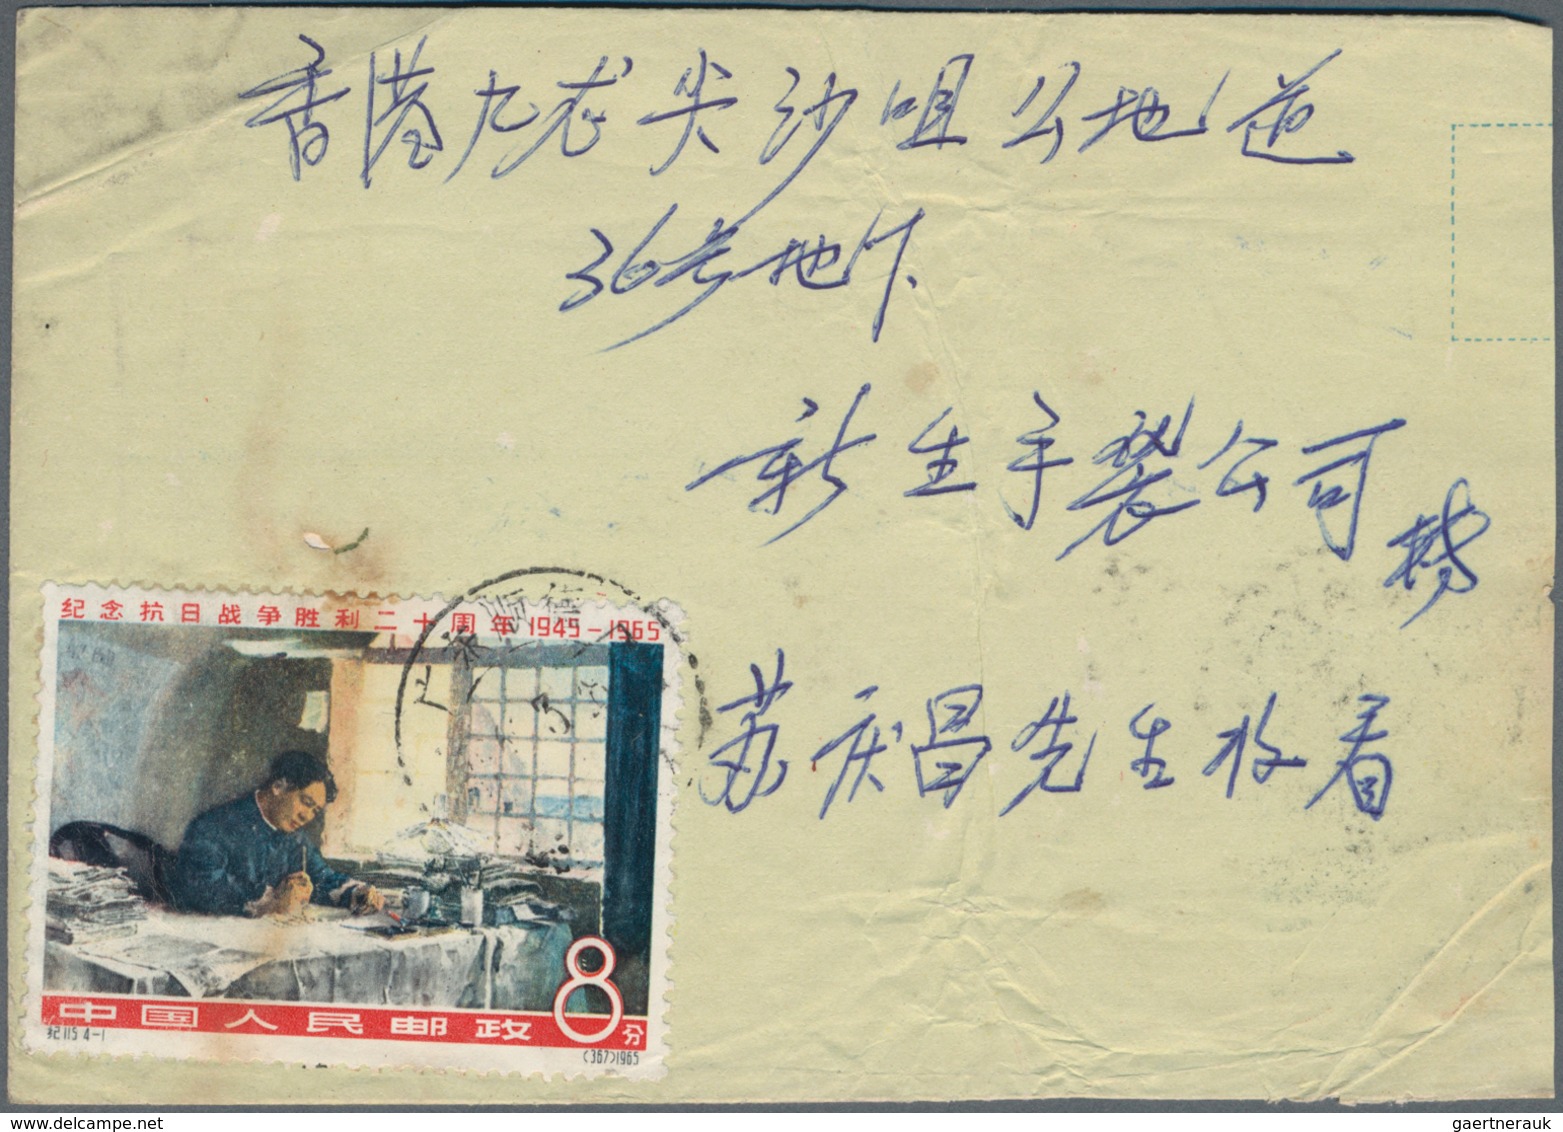 香港九龙尖沙咀公地道
36号地下
新生手袋公司
苏庆昌先生收看
纪念抗日战争胜利二十周年 1945-1965
广东
中国人民邮政 8分
纪115 4-1
(367)1965
gaertnerauk